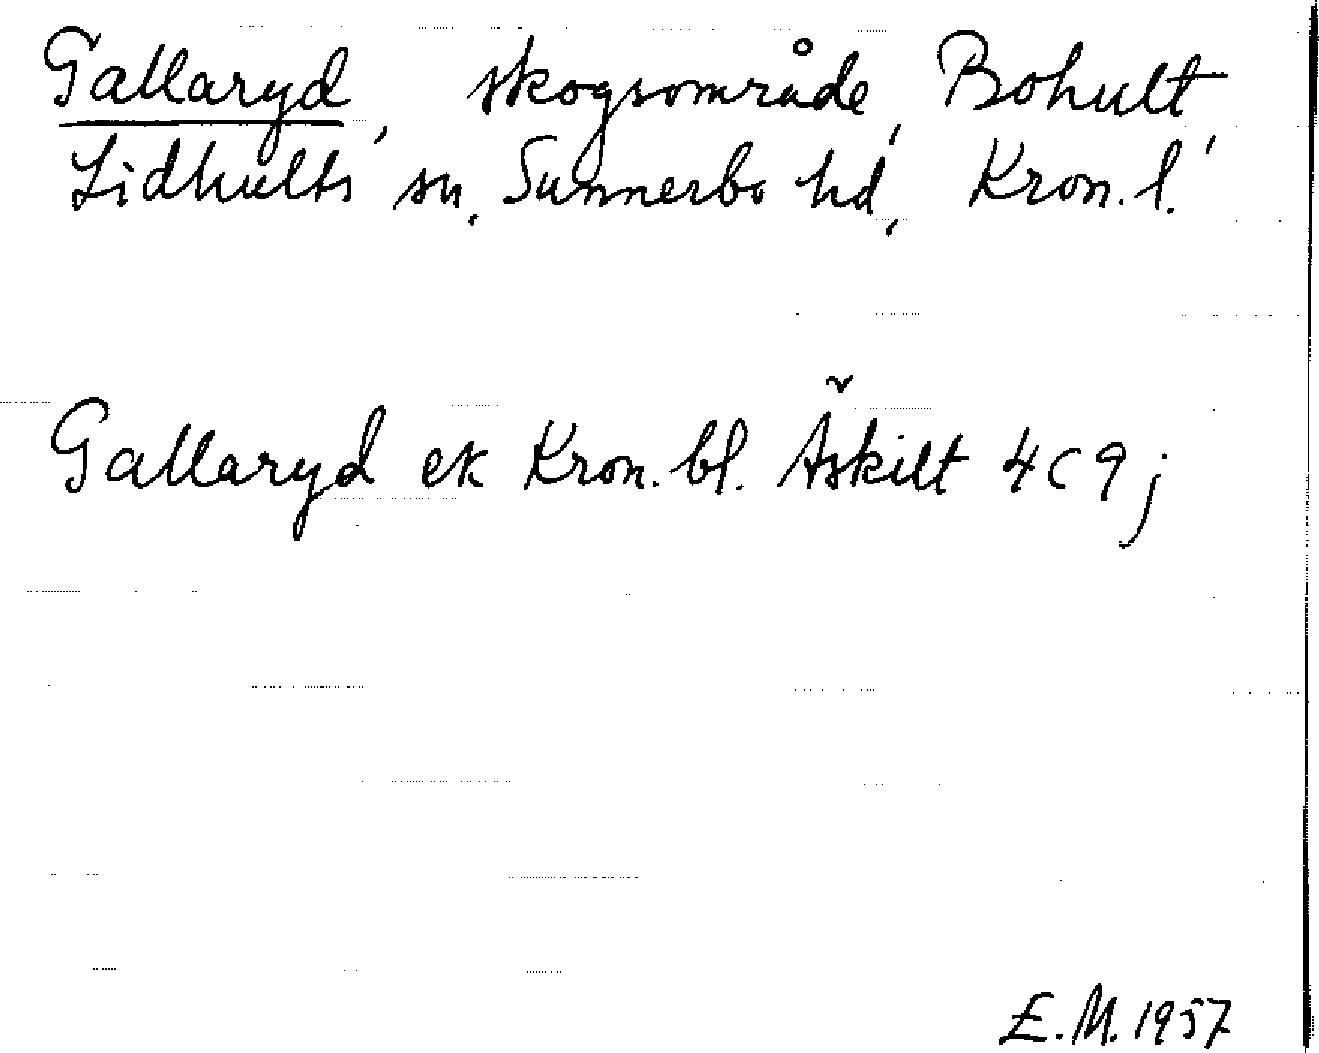 Gallaryd, skogsområde, Bohult,
Lidhults sn, Sunnerbo hd, Kron.l.
Gallaryd ek Kron. bl. Äskilt 4c9j
E.M. 1957